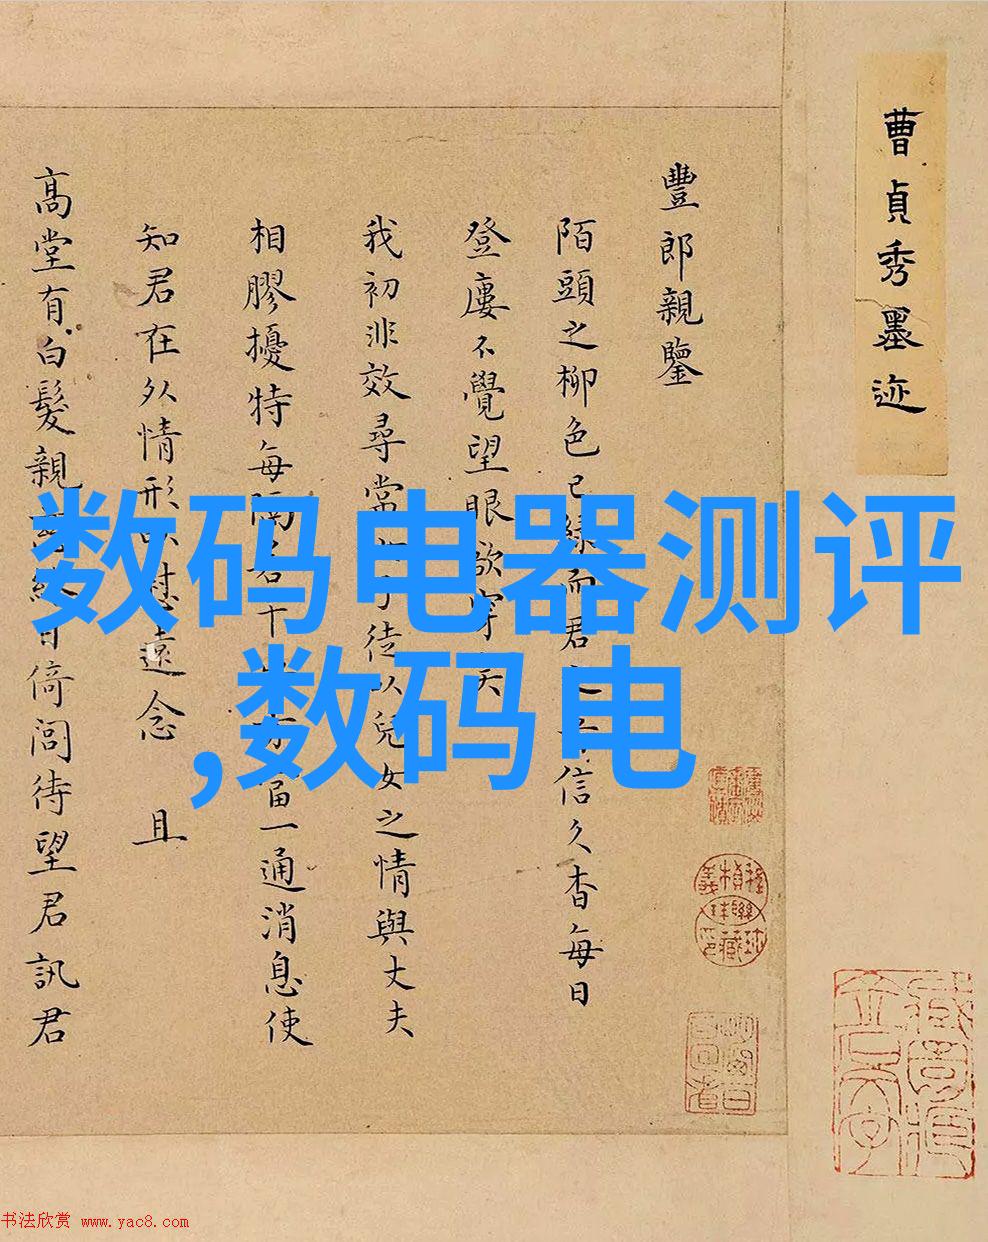 曹貞秀墨迹
豐郎親鑒
陌頭之柳色已綠而君之音信久杳每日
登樓不覺望眼欲穿矣
我初非效尋常女子徒以兒女之情與丈夫
相膠擾特每隔若干必寄一通消息使
知君在外情形以慰遠念 且
高堂有白髮親
倚閭待望君訊君
数码电器测评
,数码电
书法欣赏 www.yac8.com